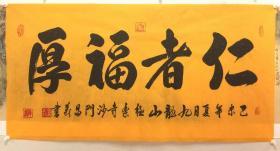 仁者福厚
乙未年夏月九龍山極寺沙門昌書